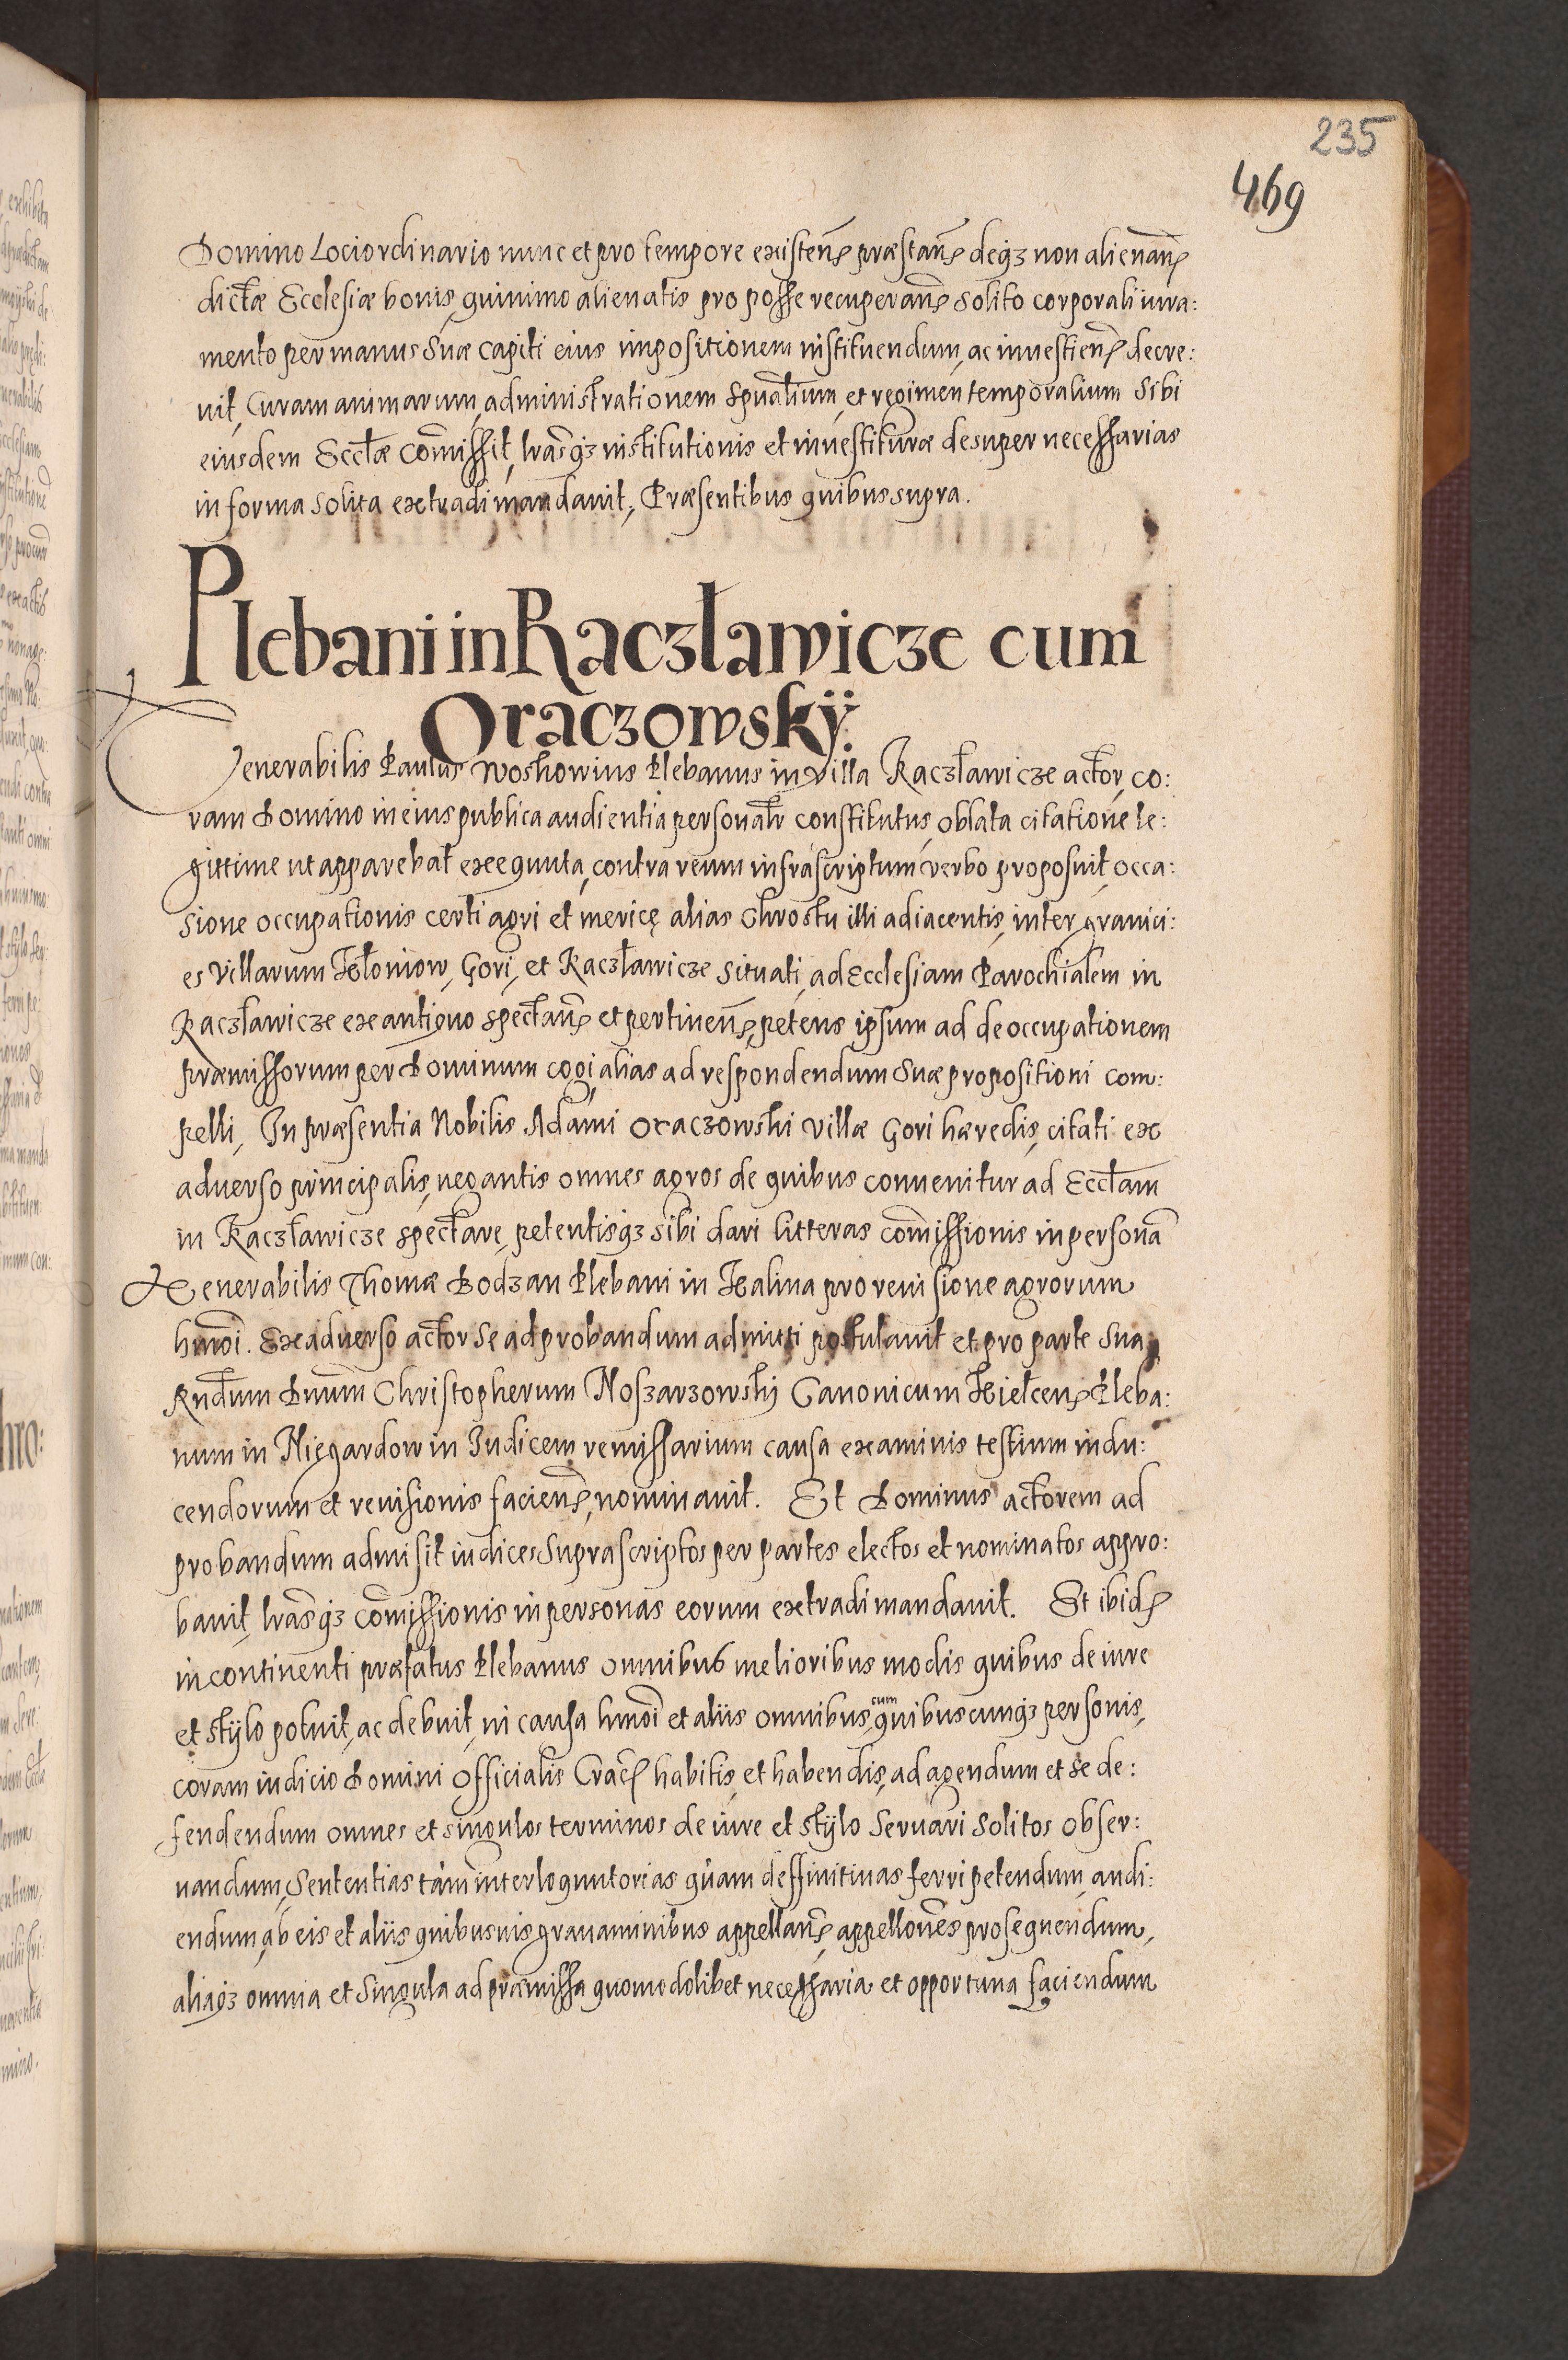 235
469
Domino Loci ordinario nunc et pro tempore existeñ præstañ deq3 non alienañ
dictæ Ecclesiæ bonis, quinimo alienatis pro posse recuperañ solito corporali iura:
mento per manus suæ capiti eius impositionem instituendum, ac inuestieñ decre:
uit, Curam animarum, administrationem spualium, et regimen temporalium sibi
eiusdem Eccłæ com̃issit, lrasq3 institutionis et inuestituræ desuper necessarias
in forma solita extradi mandauit, Præsentibus quibus supra.
Plebani in Raczławicze cum
Oraczowskÿ.
Venerabilis Paulus Woshowius Plebanus in Villa Raczławicze actor, co:
ram Domino in eius publica audientia personalr constitutus, oblata citatione le:
gittime ut apparebat exequuta, contra reum infrascriptum verbo proposuit, occa:
sione occupationis certi agri et mericę alias Chrostu illi adiacentis, inter granici:
es Villarum Føłoniow, Gori, et Raczławicze situati, ad Ecclesiam Parochialem in
Raczławicze ex antiquo spectañ et pertineñ, petens ipsum ad deoccupationem
præmissorum per Dominum cogi, alias ad respondendum suæ propositioni com:
pelli, In præsentia Nobilis Adami Oraczowski villæ Gori hæredis, citati ex
aduerso principalis, negantis omnes agros de quibus conuenitur ad Eccłam
in Raczławicze spectare, petentisq3 sibi dari litteras com̃issionis in persona
Venerabilis Thomæ Bodzan Plebani in Kalina pro reuisione agrorum
hmoi. Ex aduerso actor se ad probandum admitti postulauit et pro parte sua,
Rndum Dnum Christopherum Noszarzowskÿ Canonicum Kielceñ Pleba:
num in Niegardow in Iudicem remissarium causa examinis testium indu:
cendorum et reuisionis facieñ, nominauit. Et Dominus actorem ad
probandum admisit iudices suprascriptos per partes electos et nominatos appro:
bauit, lrasq3 com̃issionis in personas eorum extradi mandauit. Et ibid
incontinenti præfatus Plebanus omnibus melioribus modis quibus de iure
et stÿlo potuit, ac debuit, in causa hmoi et aliis omnibus, cum quibuscunq3 personis,
coram iudicio Domini Officialis Crac habitis, et habendis, ad agendum et se de:
fendendum omnes et singulos terminos de iure et stÿlo seruari solitos obser:
uandum, Sententias tàm interloquutorias quàm deffinitiuas ferri petendum, audi:
endum, ab eis et aliis quibusuis grauaminibus appellañ, appellones prosequendum,
aliaq3 omnia et singula ad præmissa quomodolibet necessaria et opportuna faciendum